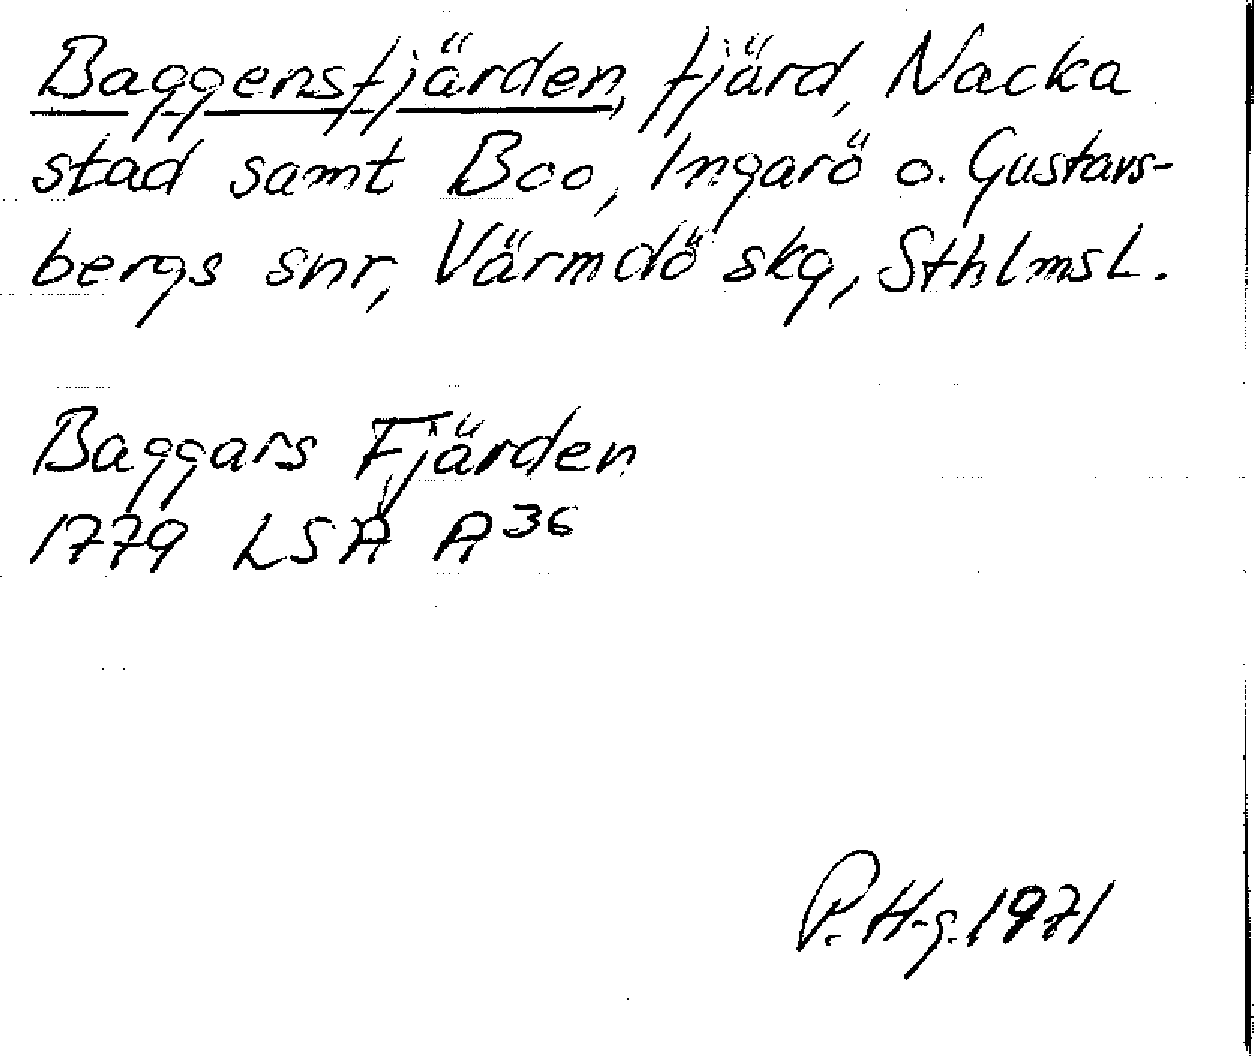 Baggensfjärden, fjärd, Nacka
stad samt Boo, Ingarö o. Gustavs-
bergs snr, Värmdö skg, Sthlms L.
Baggars Fjärden
1779 LSA A 36
P. H-g. 1971